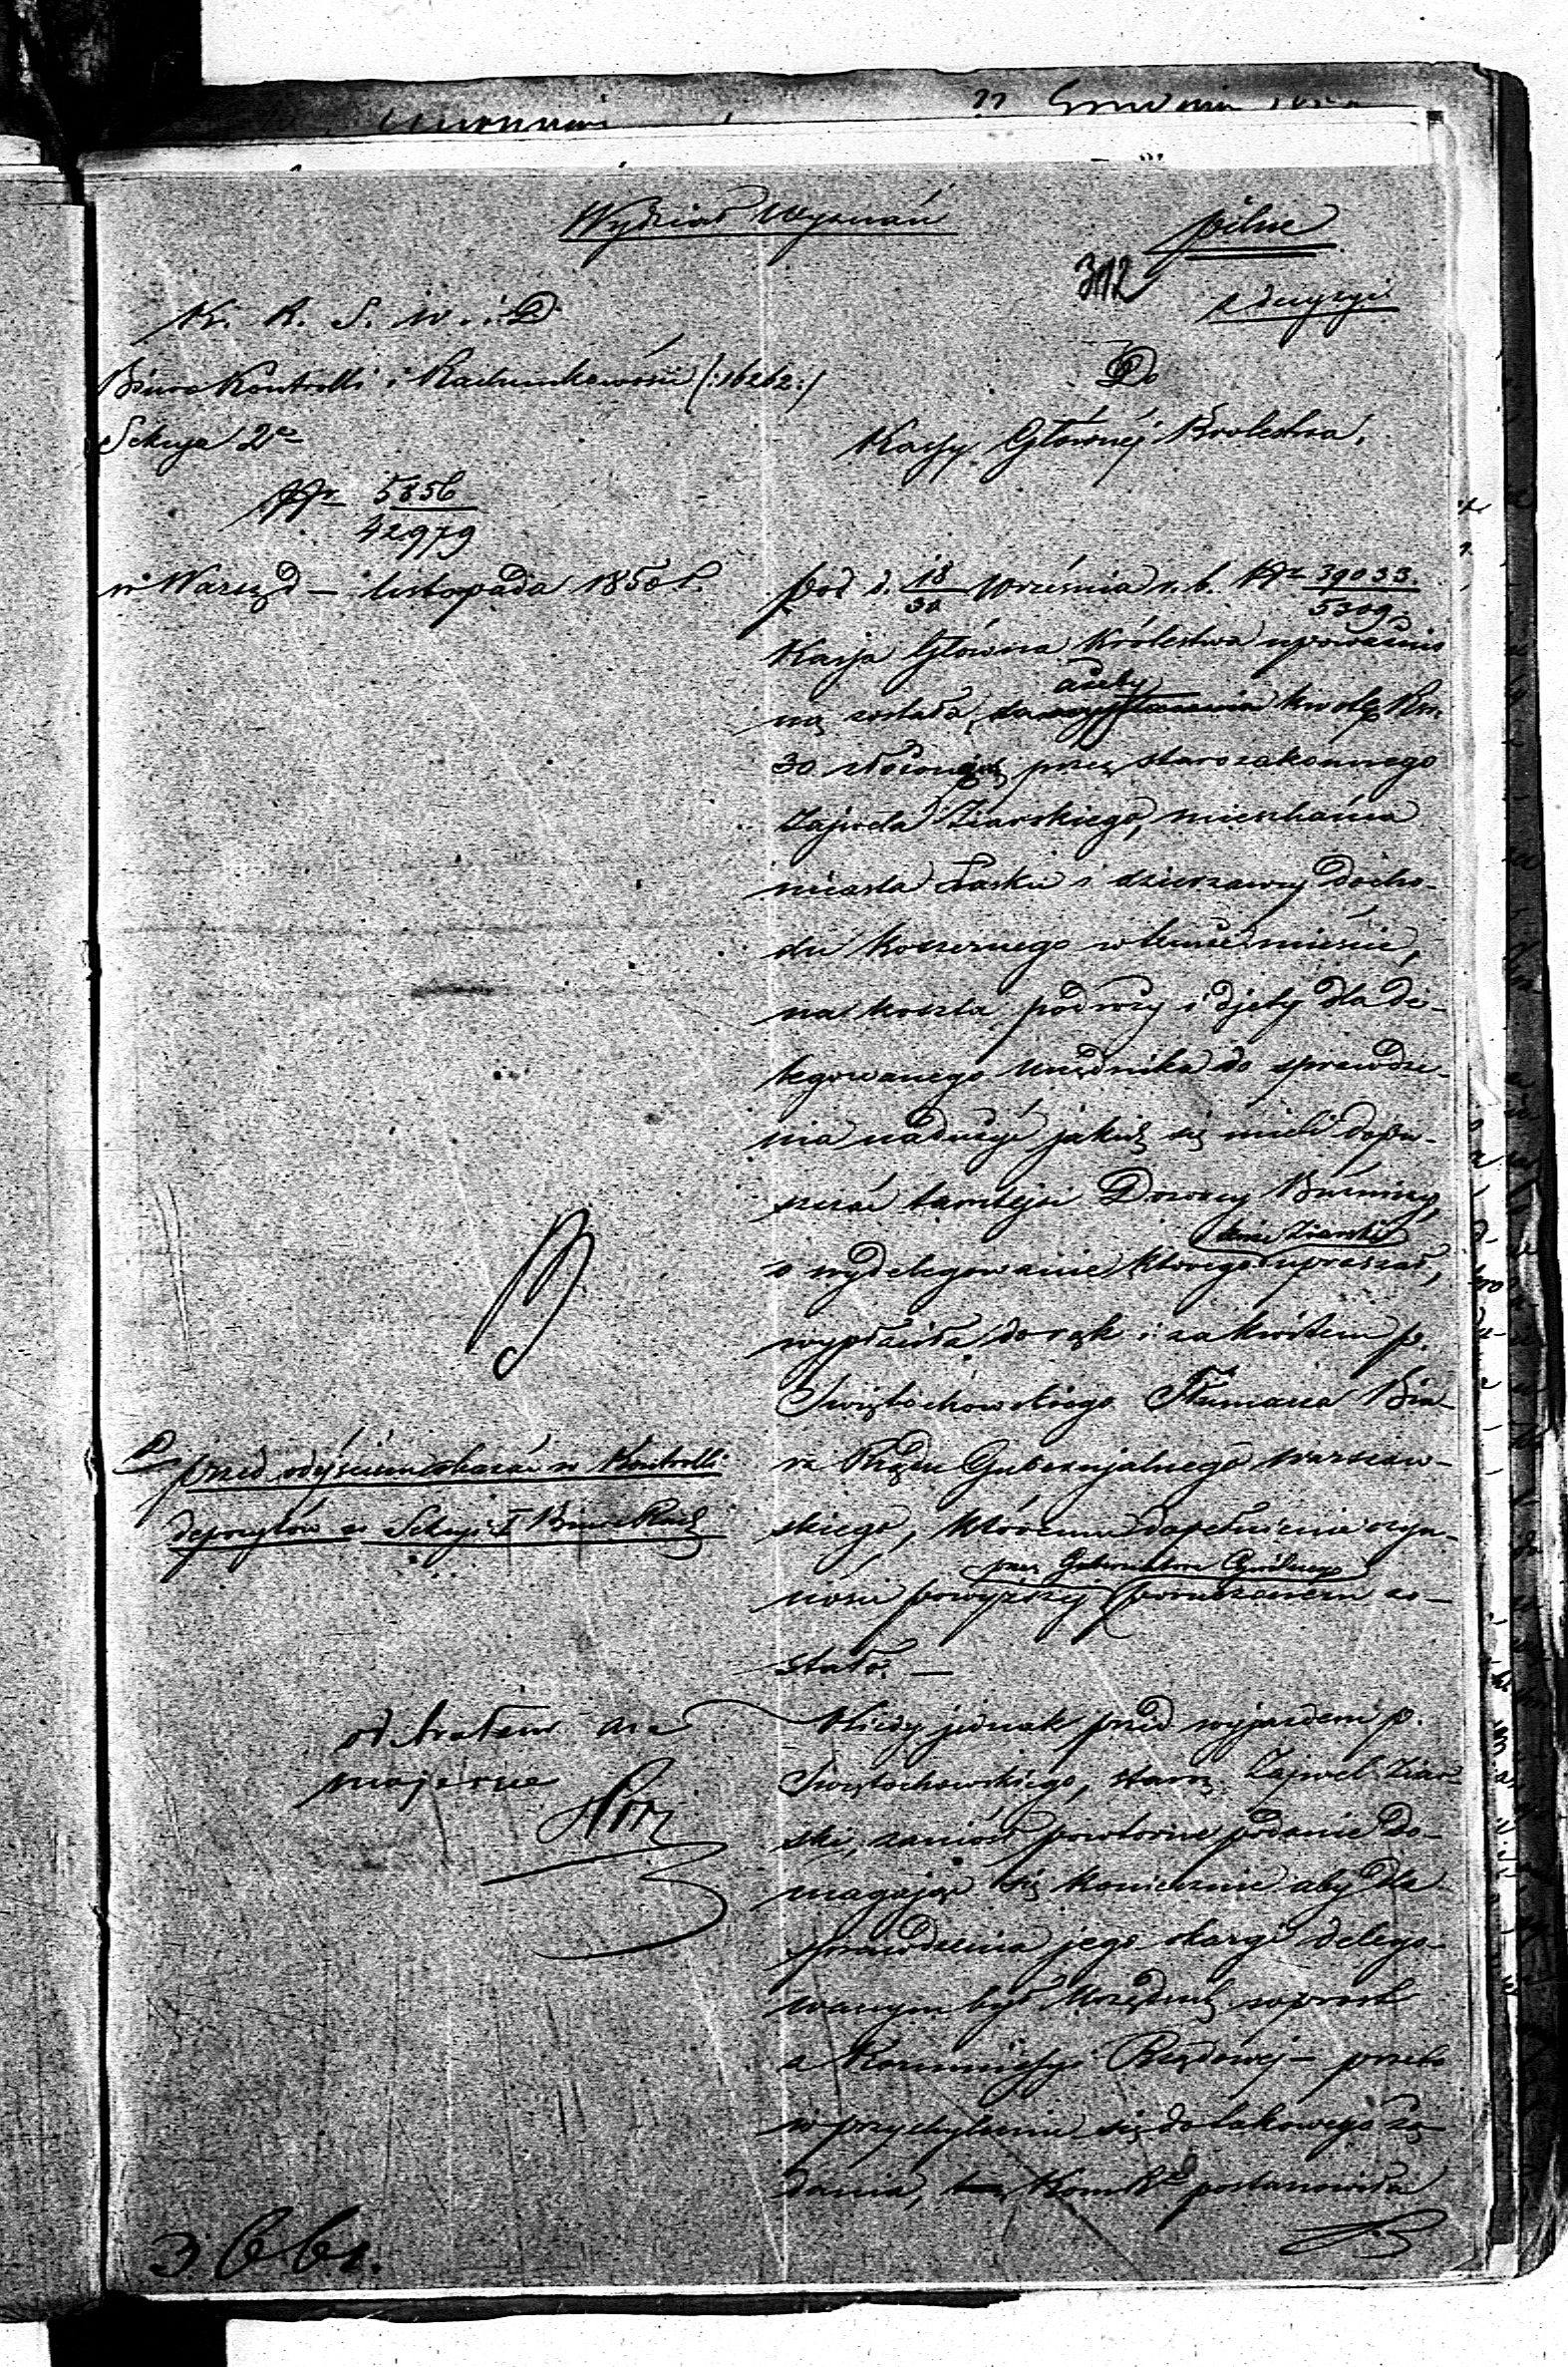 Wydział Wyznań
pilne
312
z decyzyi
K. R. S. W. i D.
Biuro Kontrolli i Rachunkowości (:16262:)
Sekcya 2ª
Nr 5856
42979
w Warsz d — listopada 1850 r.
Do
Kassy Głównéj Królestwa,
Pod d. 18/30 Września r. b. Nr 39033.
5309.
Kassa Główna Królestwa upoważnio
ną została, ażeby kwotę Rsr.
30 złożoną przez starozakonnego
Zajwela Ziarskiego, mieszkańca
miasta Łasku i dzierżawcy docho-
du koszernego w temże mieście,
na koszta podróży i djety dla de-
legowanego Urzędnika do sprawdze-
nia nadużyć jakich się mieli dopu-
szczać tamtejsi Dozorcy Bóżniczy,
tenże Ziarski
o wydelegowanie którego upraszał,
wypłaciła do rąk i za kwitem p.
Swiętochowskiego Tłumacza Biu-
ra Rządu Gubernjalnego Warszaw-
skiego, któremu dopełnienie czyn-
przez Gubernatora Cywilnego
ności powyższéj poruczonem zo-
stało. —
Kiedy jednak przed wyjazdem p.
Swiętochowskiego, starz. Zajwel Ziar-
ski, zaniósł powtórne podanie do-
magając się koniecznie aby dla
sprawdzenia jego skargi delego-
wanym był Urzędnik wprost
z Kommissyi Rządowéj — przeto
w przychyleniu się do takowego żą-
dania, Kom Rª postanowiła
przed odejściem okazać w Kontrolli
depozytów w Sekcyi I Biura Rach
odebrałem